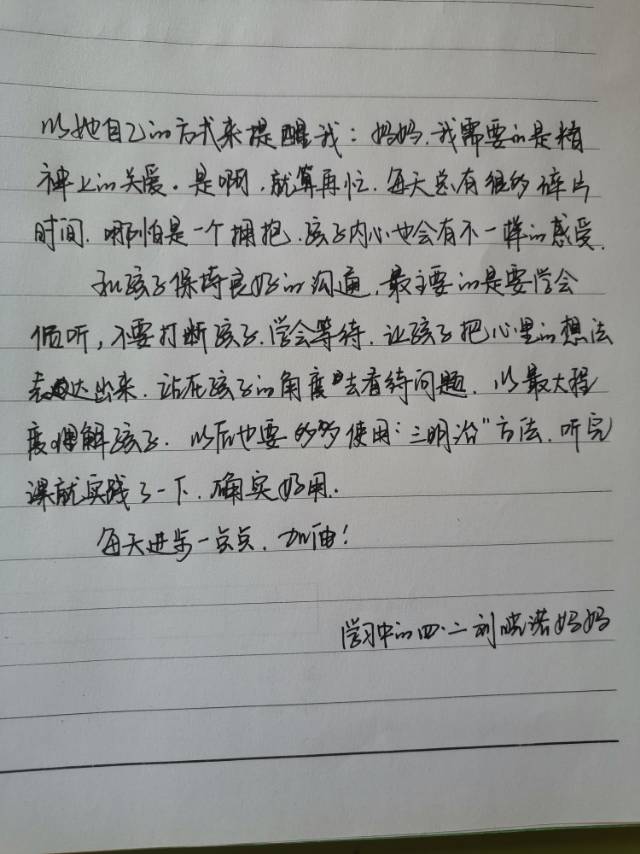 以她自己的方式来提醒我：妈妈，我需要的是精
神上的关爱。是啊，就算再忙，每天总有很多碎片
时间，哪怕是一个拥抱，孩子内心也会有不一样的感受。
和孩子保持良好的沟通，最主要的是要学会
倾听，不要打断孩子，学会等待，让孩子把心里的想法
表达出来，站在孩子的角度去看待问题，以最大程
度理解孩子，以后也要多多使用“三明治”方法，听完
课就实践了一下，确实好用。
每天进步一点点，加油！
学习中的四·二刘晓诺妈妈